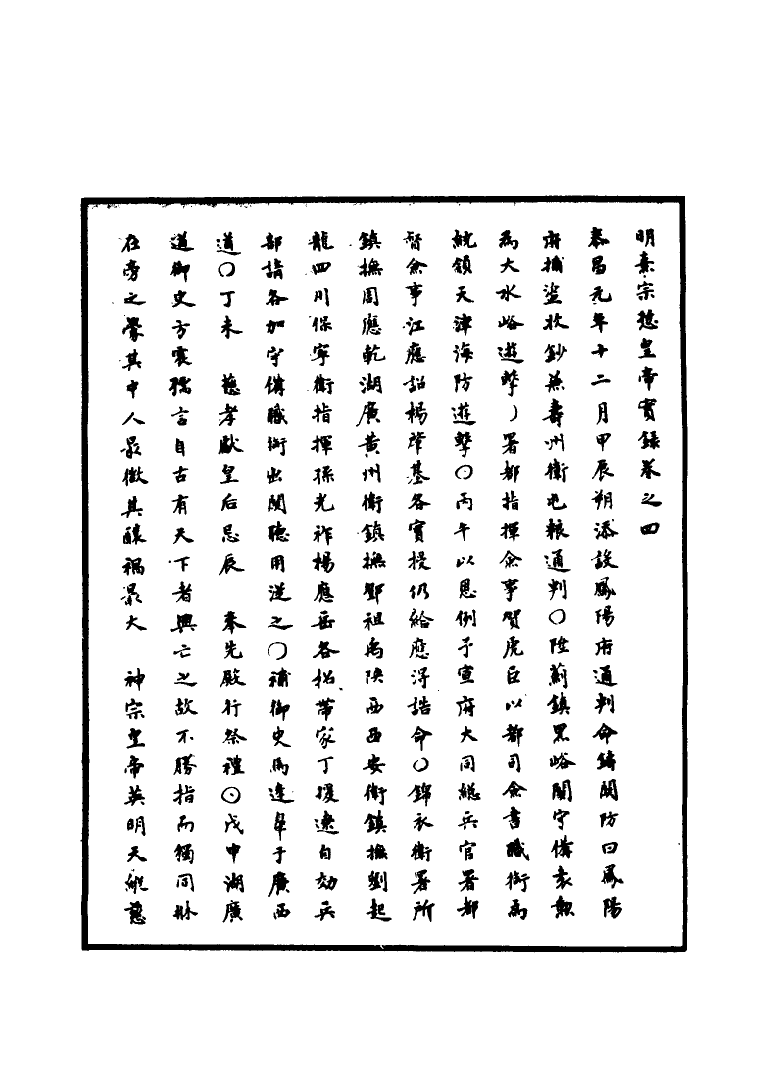 明熹宗悊皇帝實錄卷之四
泰昌元年十二月甲辰朔添設鳳陽府通判命鑄関防曰鳳陽
府捕盜收鈔兼壽州衛屯粮通判○陞薊鎮黑峪関守備袁勲
為大水峪遊擊○署都指揮僉事賀虎臣以都司僉書職銜為
統領天津海防遊擊○丙午以恩例予宣府大同總兵官署都
督僉事江應詔楊肇基各實授仍給應得誥命○錦衣衛署所
鎮撫周應乾湖廣黃州衛鎮撫鄧祖禹陝西西安衛鎮撫劉起
龍四川保寧衛指揮孫光祚楊應岳各招帶家丁援遼自効兵
部請各加守備職銜出関聽用從之○補御史馬逢皋于廣西
道○丁未　慈孝獻皇后忌辰　奉先殿行祭禮○戊申湖廣
道御史方震孺言自古有天下者興亡之故不勝指而獨同牀
在旁之釁其中人最微其釀禍最大　神宗皇帝英明天縱慈